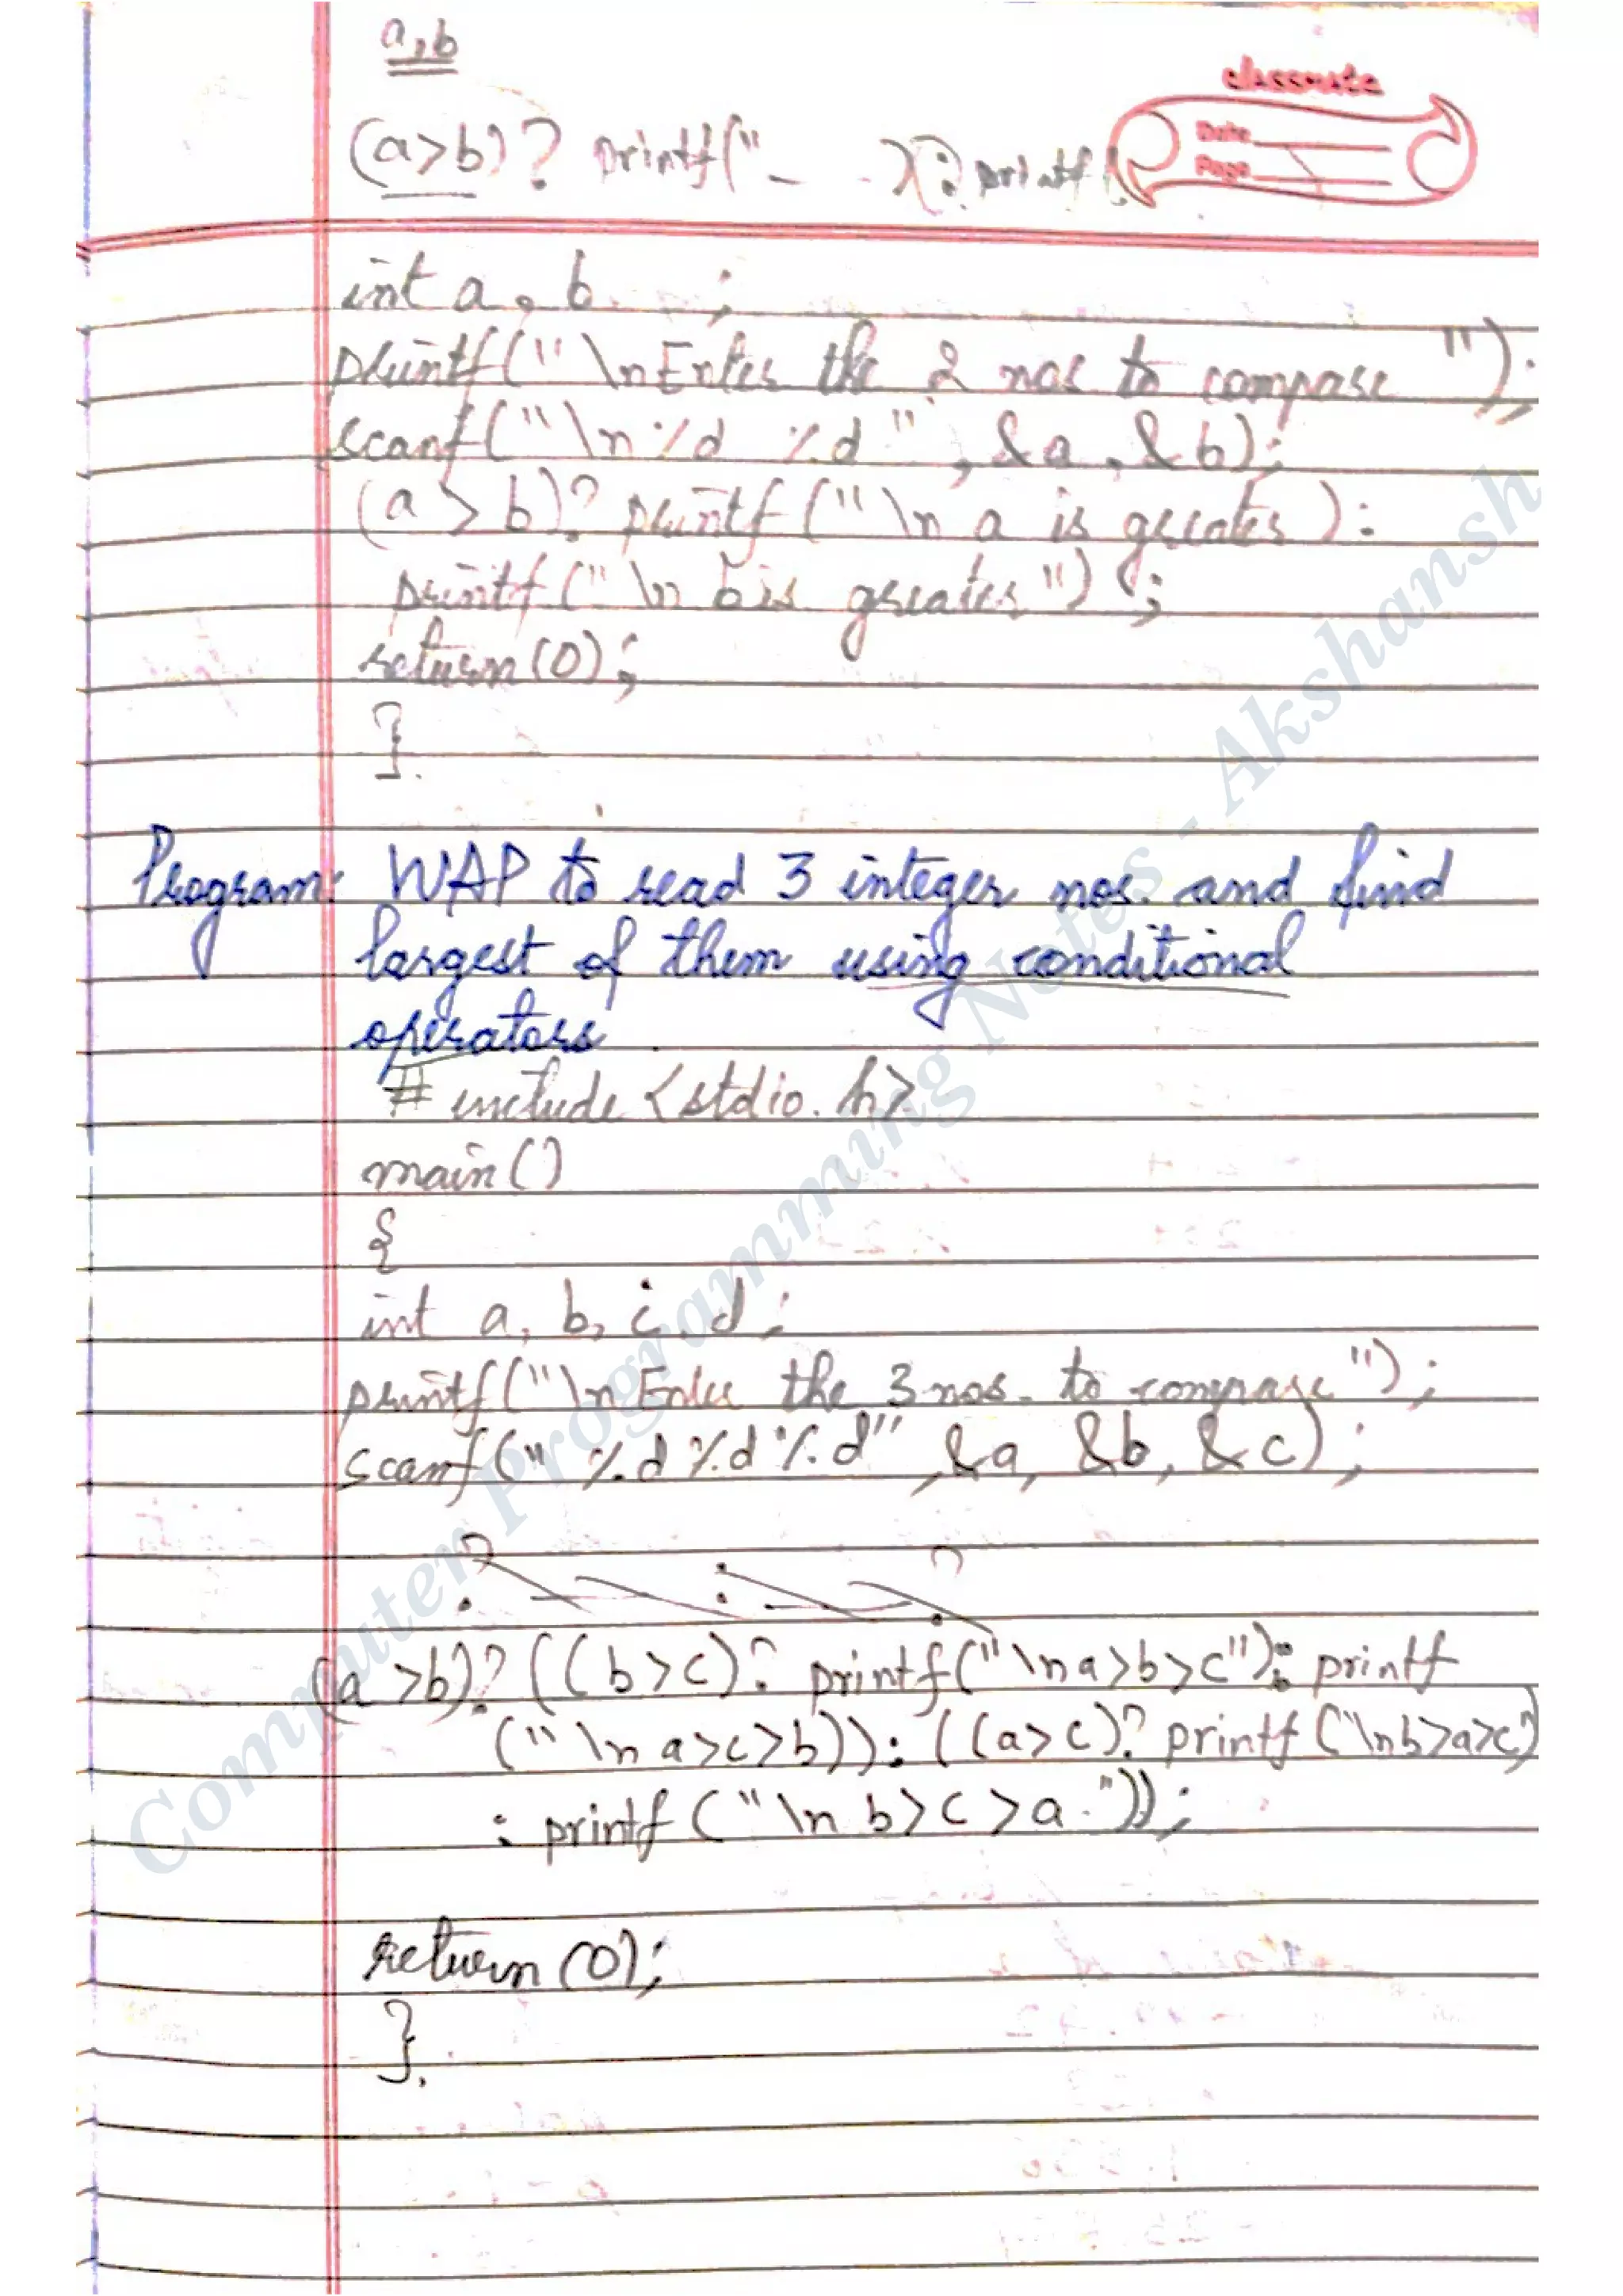 a,b
classmate
Date
Page
(a>b)? printf("_ _ ) : printf(
int a, b ;
printf("\nEnter the 2 nos to compare ");
scanf("\n%d %d", &a, &b);
(a > b)? printf("\n a is greater ):
printf("\n b is greater") ;
return(0);
}.
Program: WAP to read 3 integer nos. and find
largest of them using conditional
operators.
# include <stdio.h>
main()
{
int a, b, c, d;
printf("\n Enter the 3 nos. to compare");
scanf("%d %d %d", &a, &b, &c);
? : ?
(a >b)? ((b>c)? printf("\na>b>c"): printf
("\n a>c>b)): ((a>c)? printf ("\nb>a>c)
: printf ("\n b>c>a."));
return (0);
}.
Computer Programming Notes - Akshansh